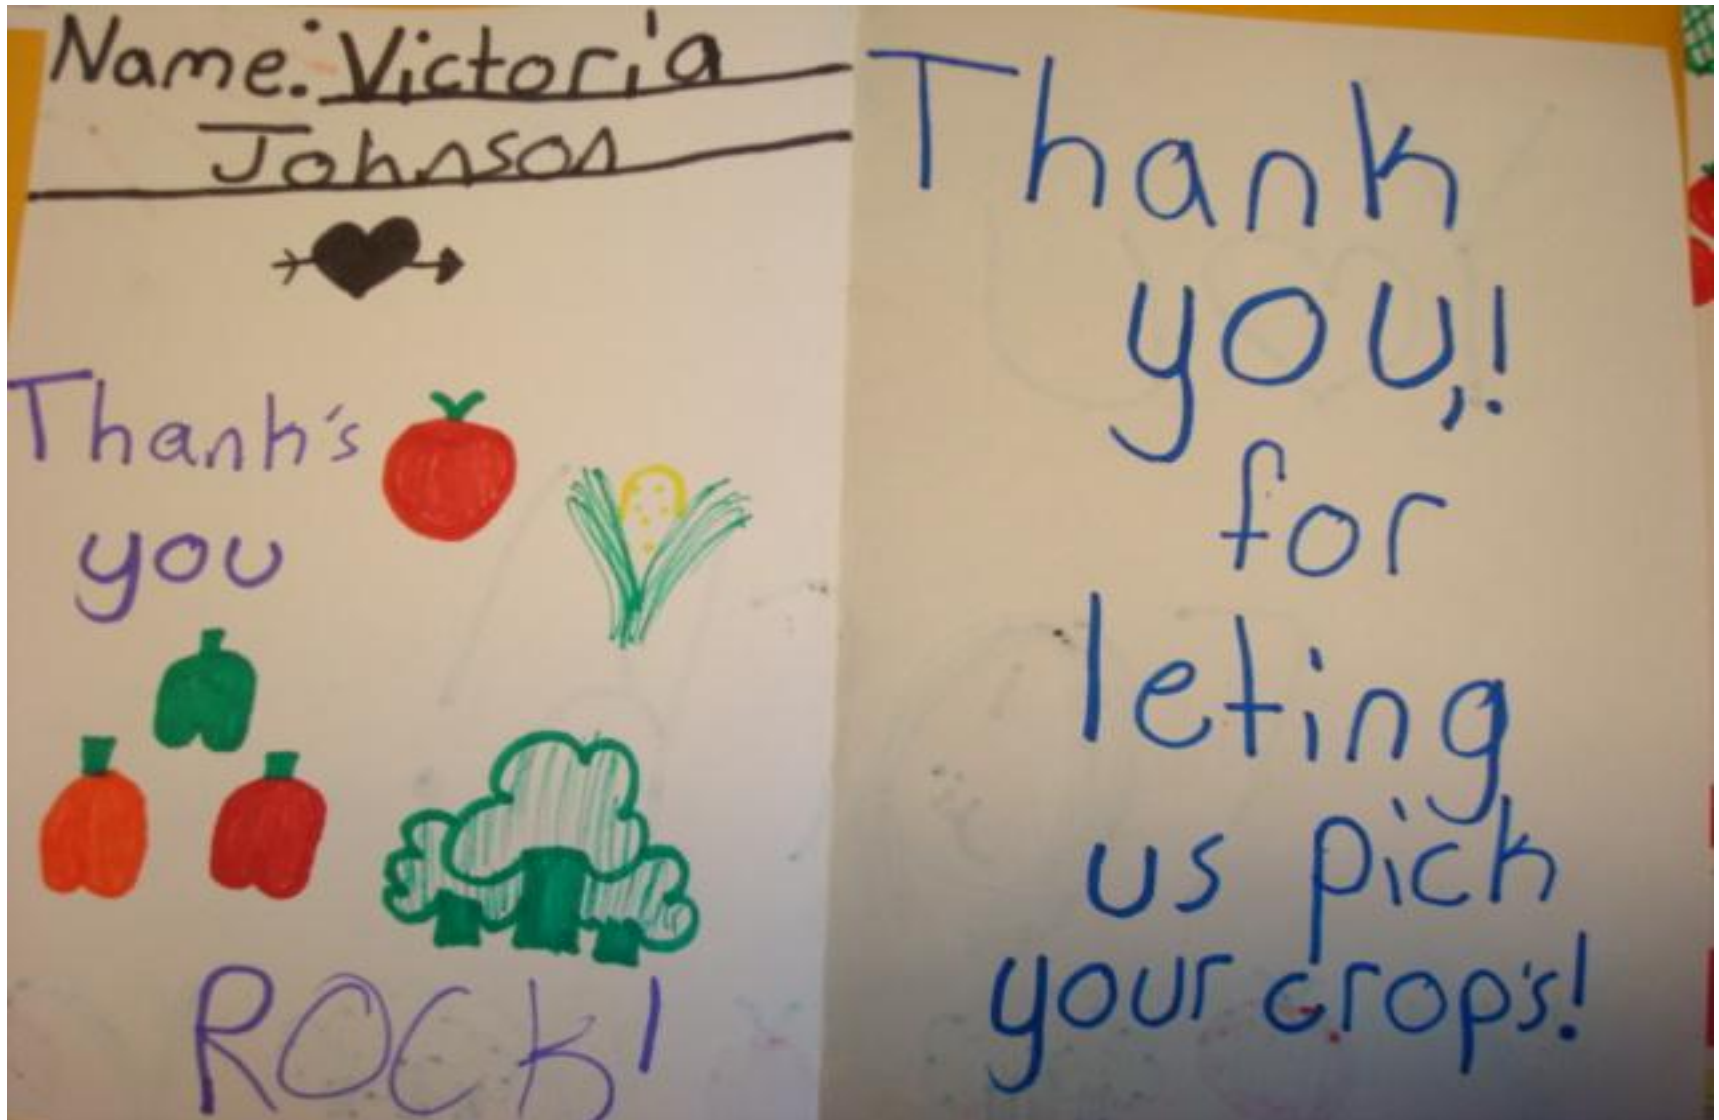 Name: Victoria
Johnson
Thank's
you
ROCK!
Thank
you,!
for
leting
us pick
your crop's!